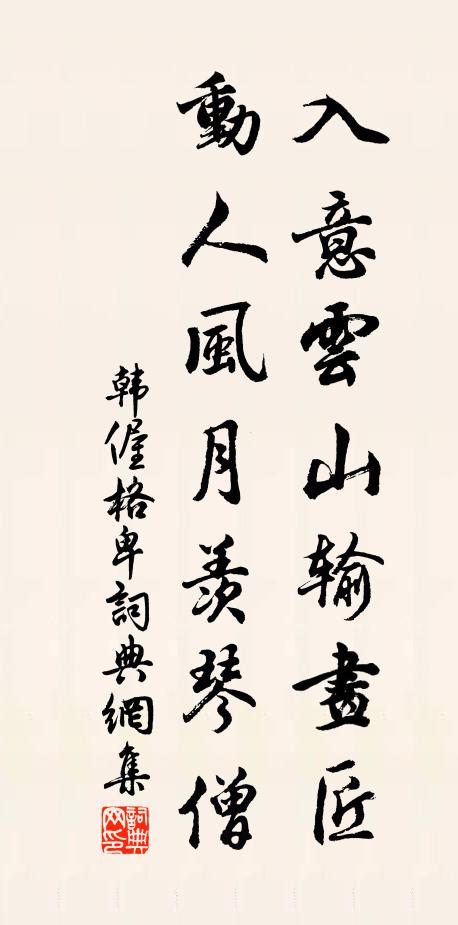 入意雲山輸畫匠
動人風月羨琴僧
韩偓格卑詞典網集
詞典網印